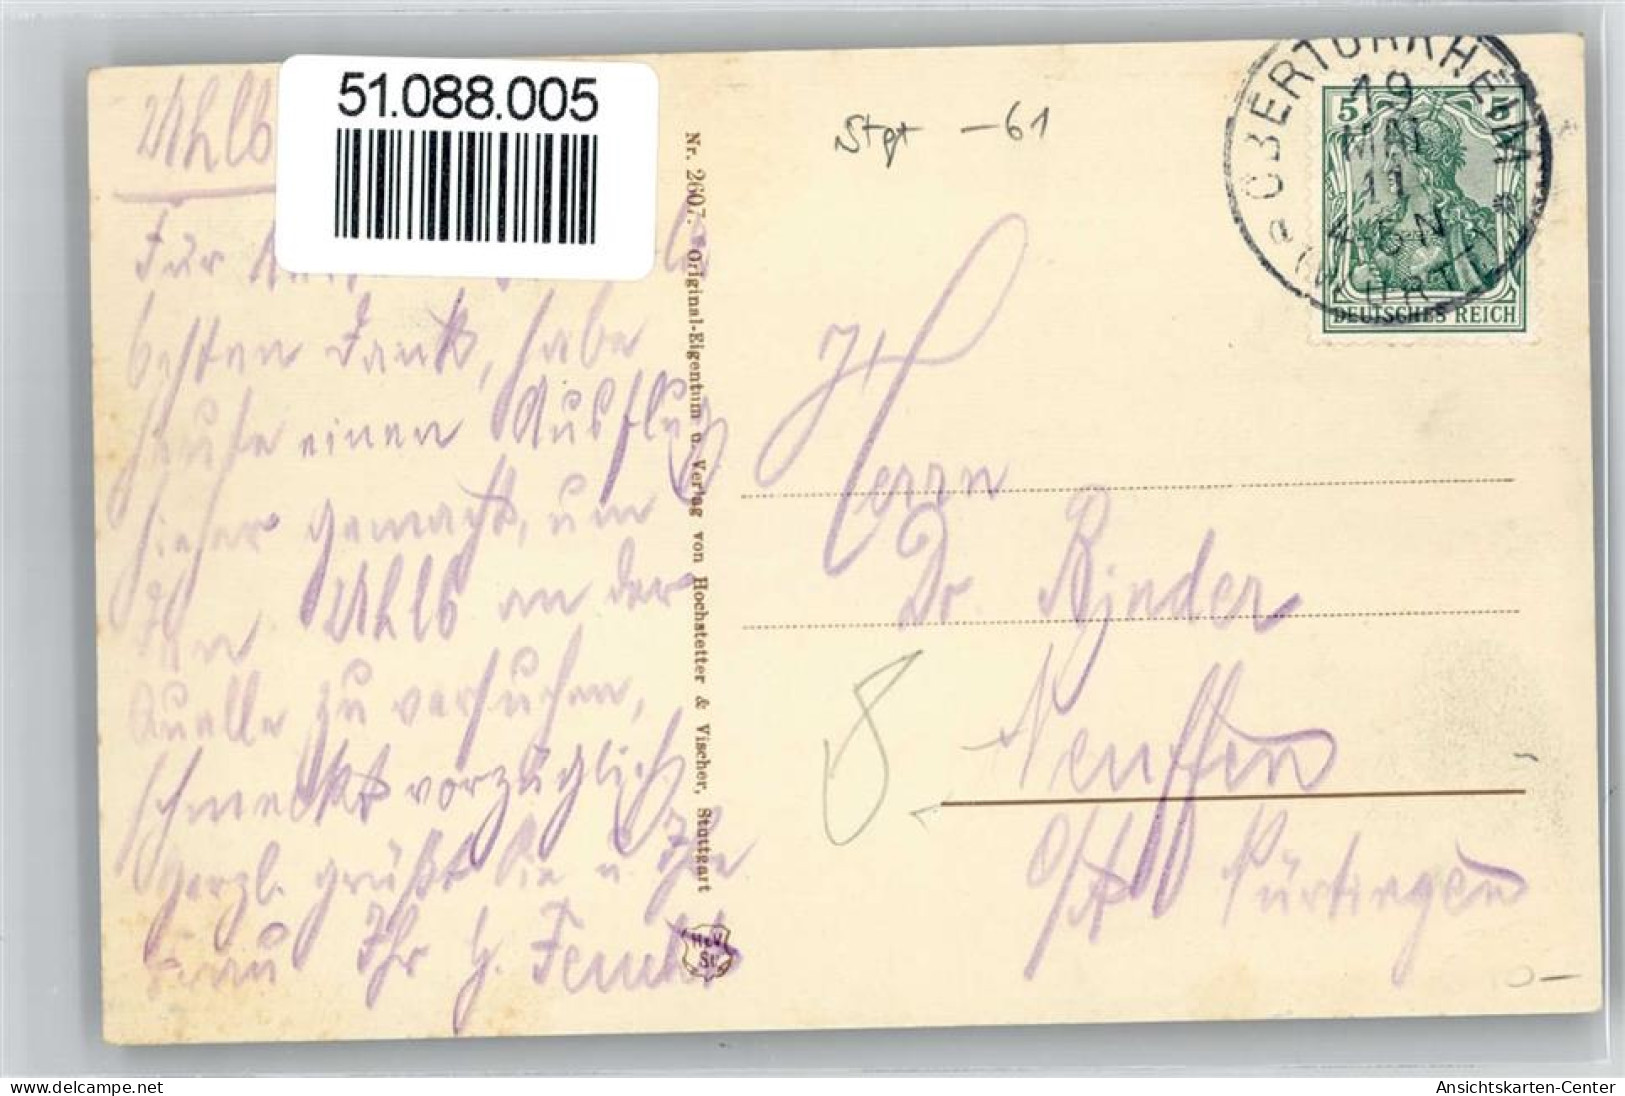 51.088.005
Uhlb
Für
besten Dank, habe
heute einen Ausflug
hieher gemacht, um
den Uhlb an der
Quelle zu versuchen,
schmeckt vorzüglich
Herzl. grüßt Sie u. Ihre
Frau Ihr
Nr. 2607. Original-Eigentum u. Verlag von Hochstetter & Vischer, Stuttgart
H&V
St.
Stgt -61
OBERTÜRKHEIM
19
MAI
11
4-5N
a
(WÜRTT.)
5 5
DEUTSCHES REICH
Herrn
Dr. Binder
Neuffen
O/A Nürtingen
delcampe.net
Ansichtskarten-Center